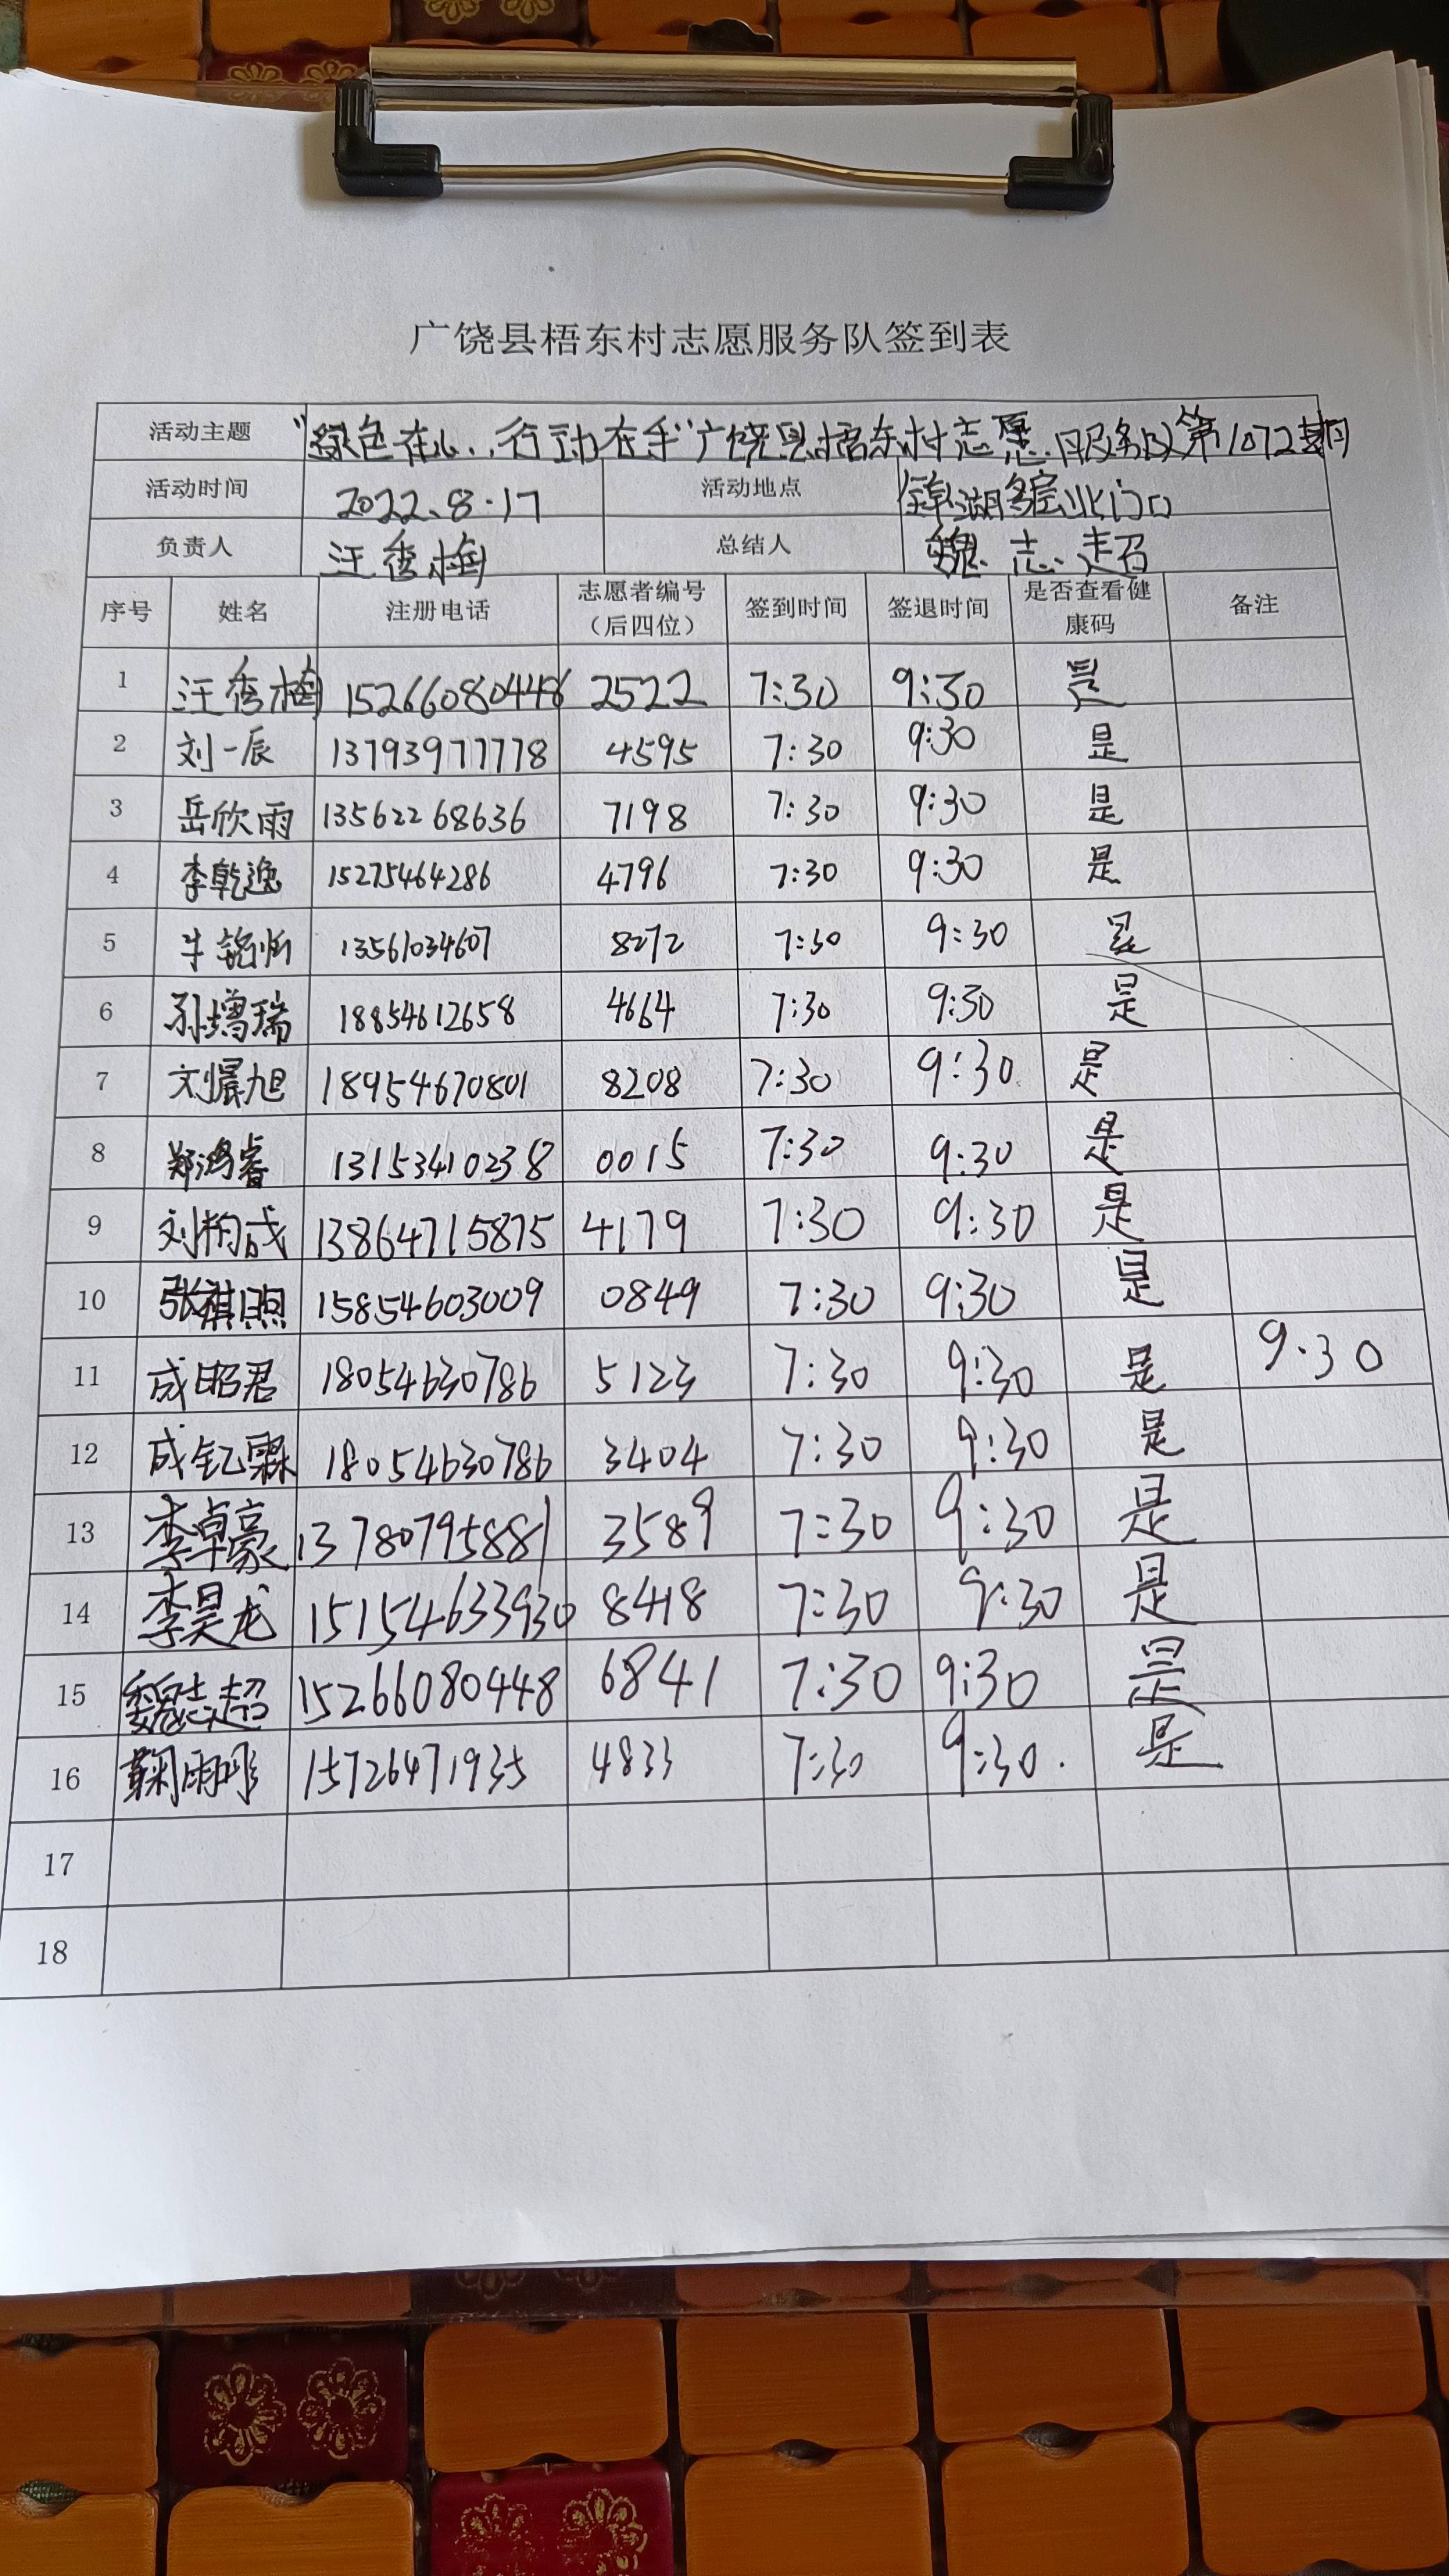 广饶县梧东村志愿服务队签到表
活动主题 "绿色在心,行动在手"广饶县梧东村志愿服务队第1072期
活动时间 2022.8.17 活动地点 锦湖多层北门口
负责人 汪秀梅 总结人 魏志超
序号 姓名 注册电话 志愿者编号(后四位) 签到时间 签退时间 是否查看健康码 备注
1 汪秀梅 15266080448 2522 7:30 9:30 是
2 刘一辰 13793977778 4595 7:30 9:30 是
3 岳欣雨 13562268636 7198 7:30 9:30 是
4 李乾逸 15275464286 4796 7:30 9:30 是
5 牛 13561034607 8272 7:30 9:30 是
6 孙增瑞 18854612658 4664 7:30 9:30 是
7 刘晨旭 18954670801 8208 7:30 9:30 是
8 郑鸿睿 13153410238 0015 7:30 9:30 是
9 刘构成 13864715875 4179 7:30 9:30 是
10 张祺煦 15854603009 0849 7:30 9:30 是
11 成昭君 18054630786 5123 7:30 9:30 是 9.30
12 成钇霖 18054630786 3404 7:30 9:30 是
13 李卓豪 13780795881 3589 7:30 9:30 是
14 李昊龙 15154633930 8418 7:30 9:30 是
15 魏志超 15266080448 6841 7:30 9:30 是
16 鞠雨彤 15726471935 4833 7:30 9:30. 是
17
18